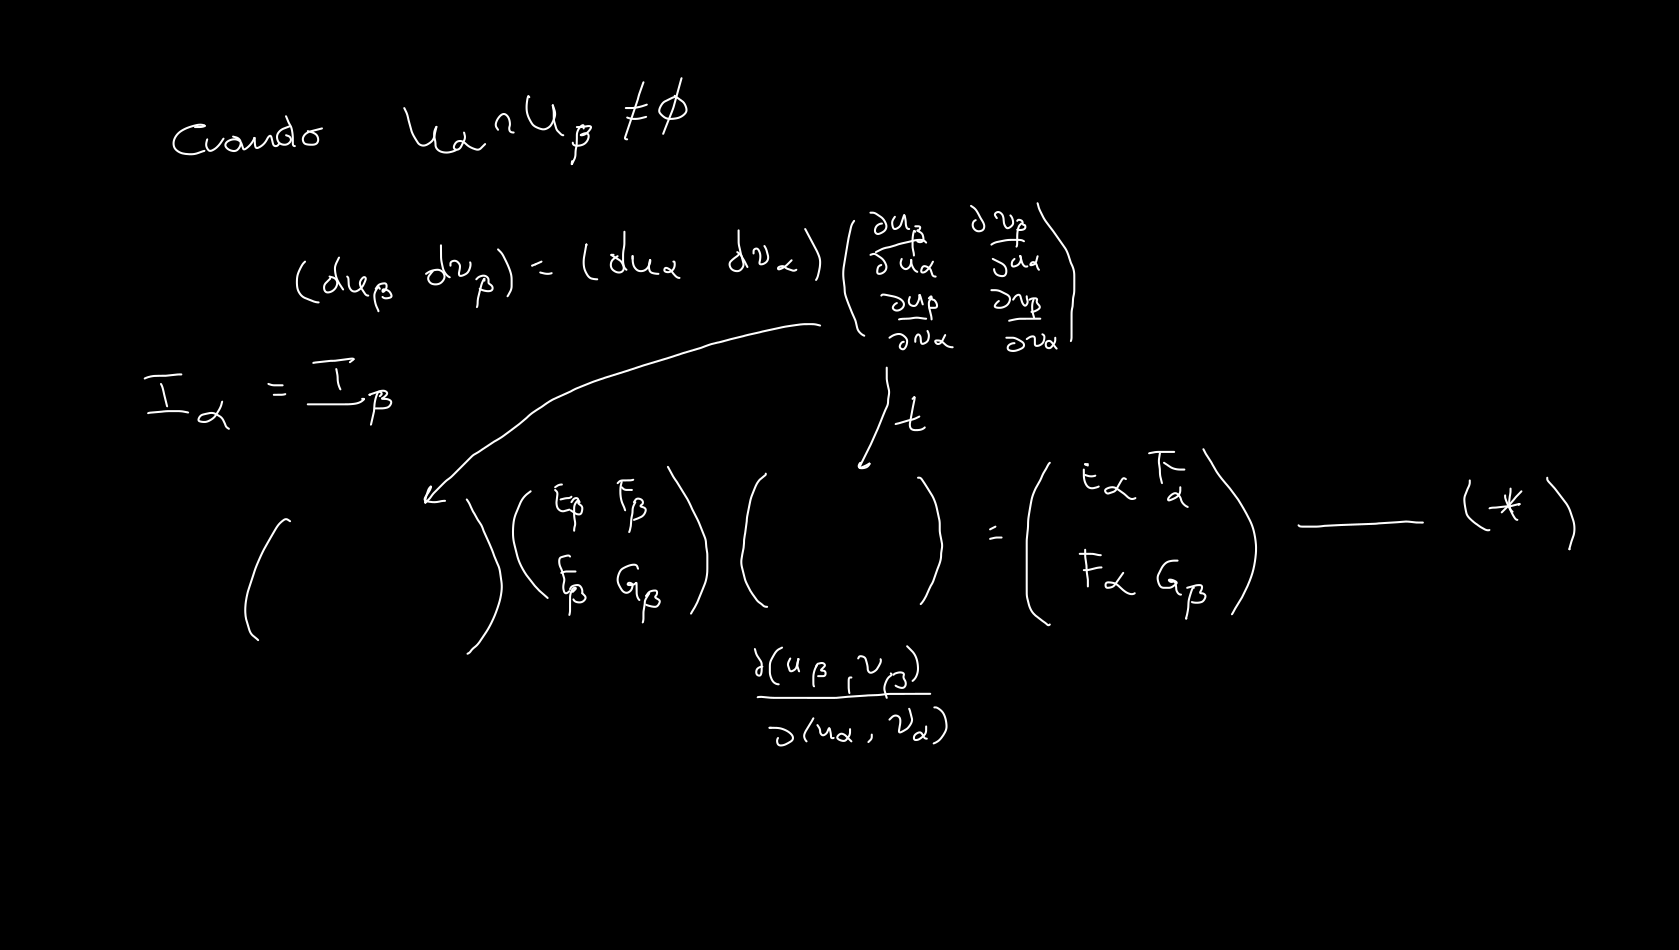 Cuando Uα ∩ Uβ ≠ ∅
(duβ dvβ) = (duα dvα) ( ∂uβ/∂uα ∂vβ/∂uα
∂uβ/∂vα ∂vβ/∂vα )
Iα = Iβ
t
( ) ( Eβ Fβ ( ) = ( Eα Fα ) — (*)
Fβ Gβ ) Fα Gβ )
∂(uβ, vβ)
∂(uα, vα)